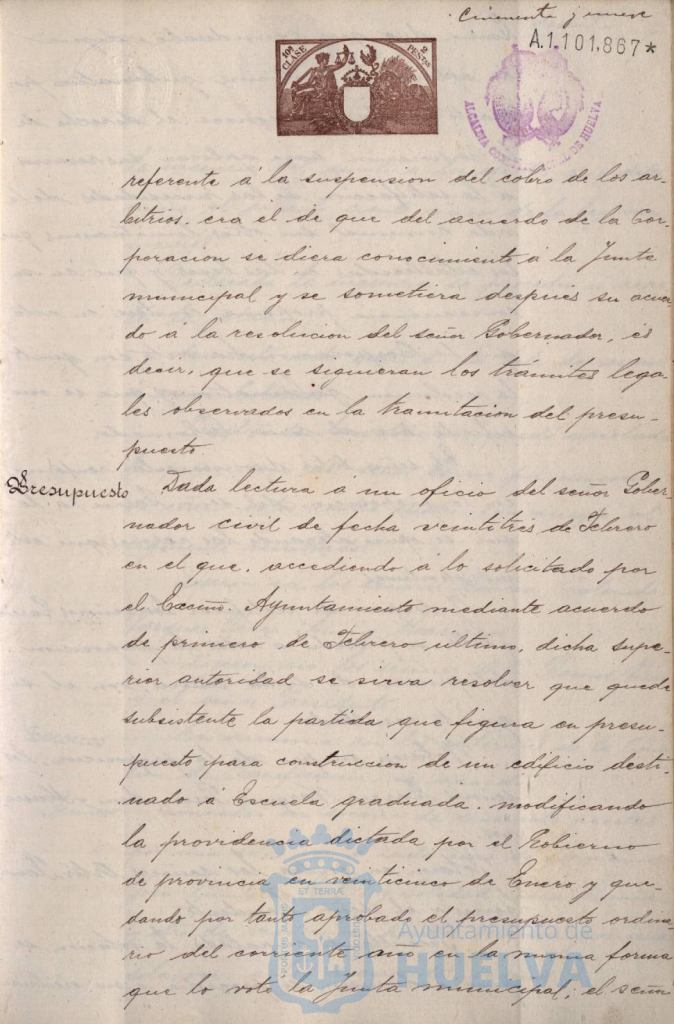 Cincuenta y nueve
A.1.101.867*
10ª CLASE
2 PESETAS
ALCALDIA CONSTITUCIONAL DE HUELVA
referente á la suspension del cobro de los ar-
bitrios. era el de que del acuerdo de la Cor-
poracion se diera conocimiento á la Junta
municipal y se sometiera despues su acuer-
do á la resolucion del señor Gobernador, es
decir, que se siguieran los trámites lega-
les observados en la tramitacion del presu-
puesto.
Presupuesto
Dada lectura á un oficio del señor Gober-
nador civil de fecha veintitres de Febrero
en el que, accediendo á lo solicitado por
el Excmo. Ayuntamiento mediante acuerdo
de primero de Febrero último, dicha supe-
rior autoridad se sirva resolver que quede
subsistente la partida que figura en presu-
puesto para construccion de un edificio desti-
nado á Escuela graduada. modificando
la providencia dictada por el Gobierno
de provincia en veinticinco de Enero y que-
dando por tanto aprobado el presupuesto ordina-
rio del corriente año en la misma forma
que lo votó la Junta municipal; el señor
ET TERRÆ
Ayuntamiento de
HUELVA